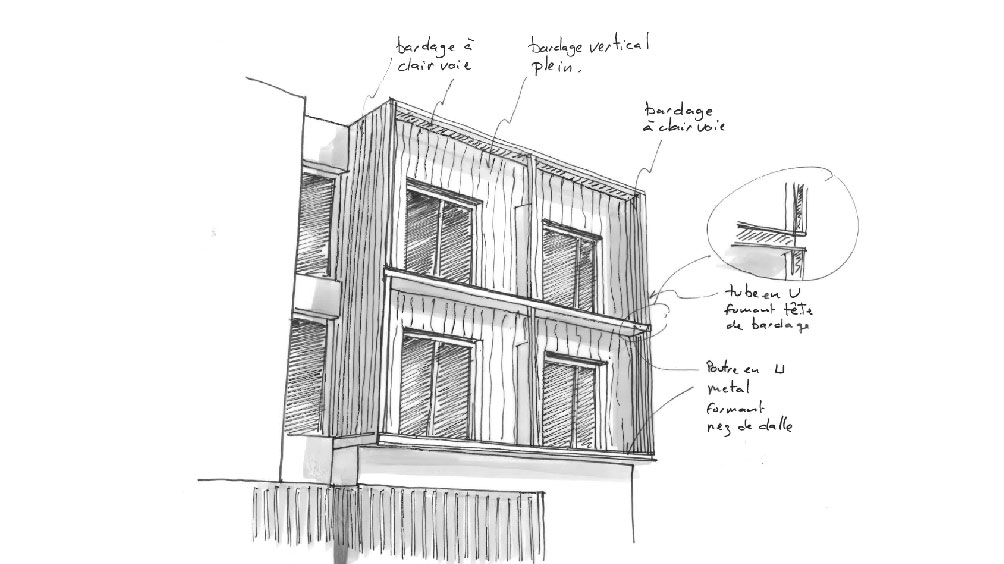 bardage à
clair voie
bardage vertical
plein.
bardage
à clair voie
tube en U
formant tête
de bardage
Poutre en U
metal
formant
nez de dalle